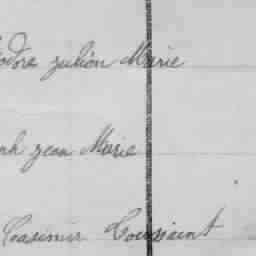 odore julien Marie
ph jean Marie
Casimir Toussaint